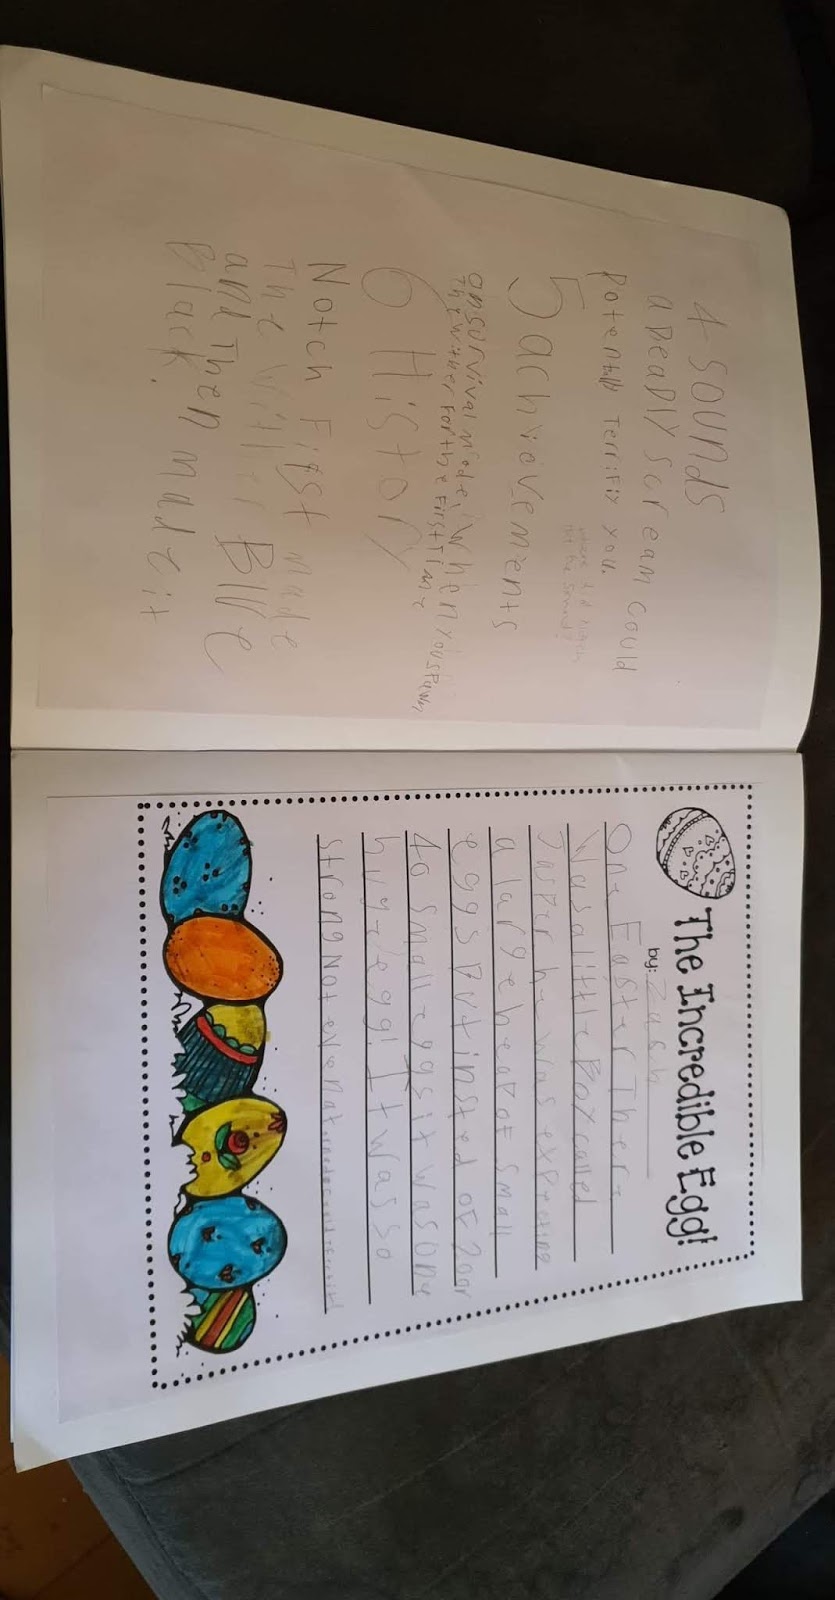 4 sounds
a DeadLy scream could
Potentally TerriFiy you.
where did notch
get the sound?
5 achievements
on survival mode, when you spawn
The wither For the First Time
6 History
Notch First made
The Wither Blue
and Then made it
Black.
The Incredible Egg!
by: Zach
One Easter There
Was a little Boy called
Jasper he was expecting
a large heap of small
eggs But insted of 200r
40 small eggs it was one
huge egg! It was so
strong Not even a